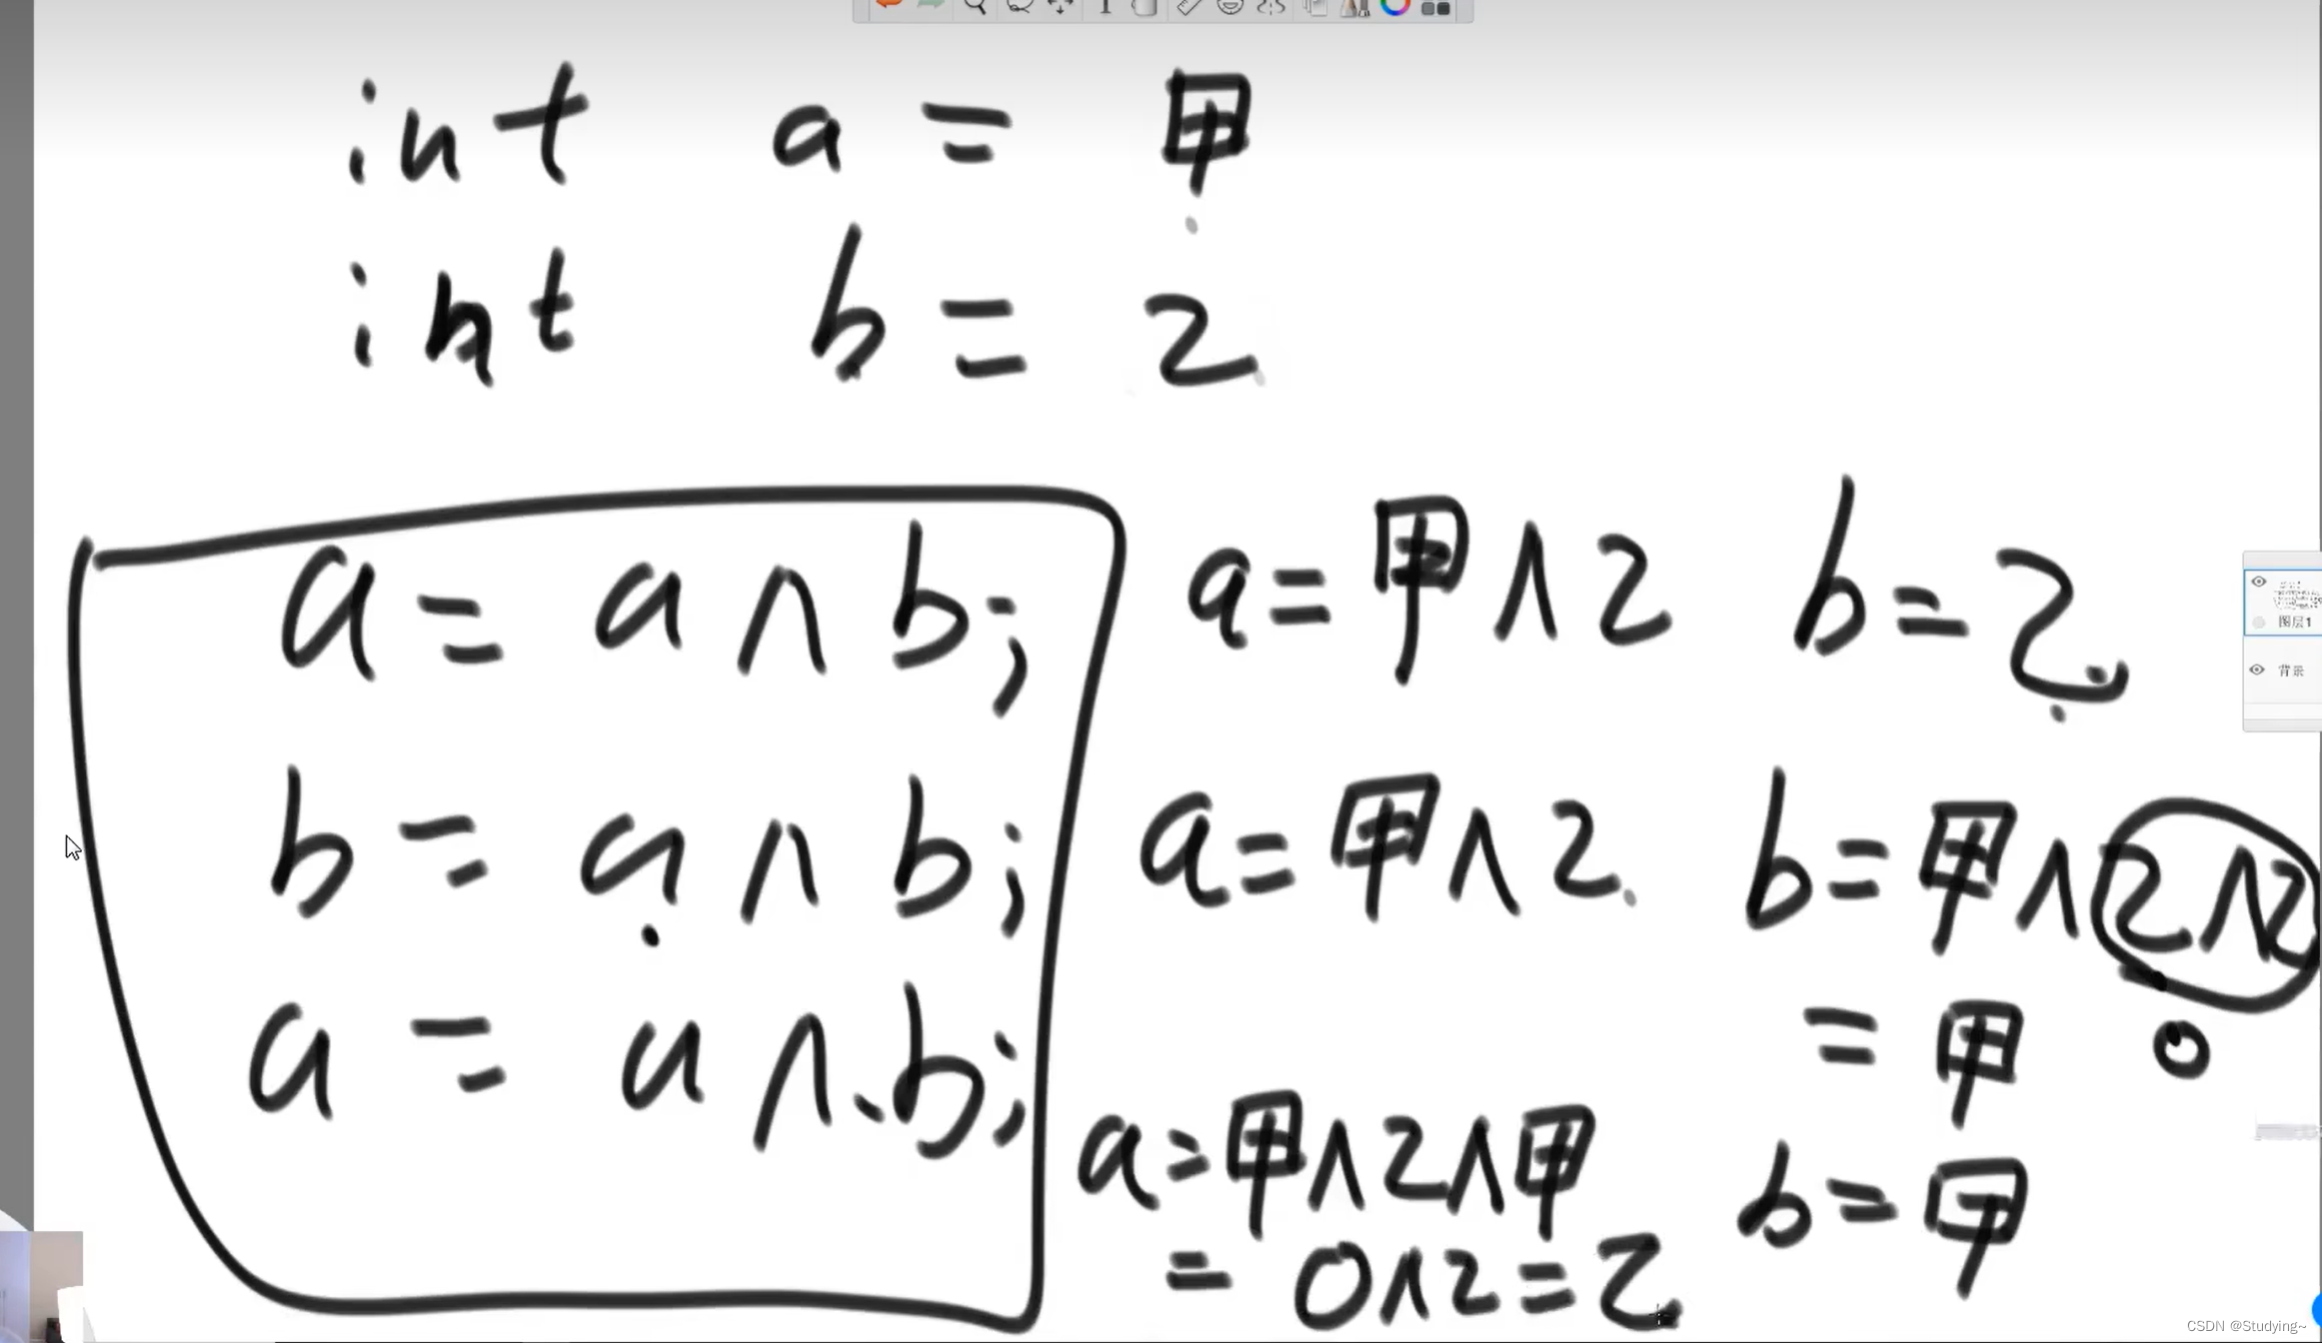 int a = 甲
int b = 乙
a = a ^ b;
a = 甲 ^ 乙 b = 乙
b = a ^ b;
a = 甲 ^ 乙 b = 甲 ^ 乙 ^ 乙
= 甲 0
a = a ^ b;
a = 甲 ^ 乙 ^ 甲 b = 甲
= 0 ^ 乙 = 乙
图层1
背景
CSDN @Studying~